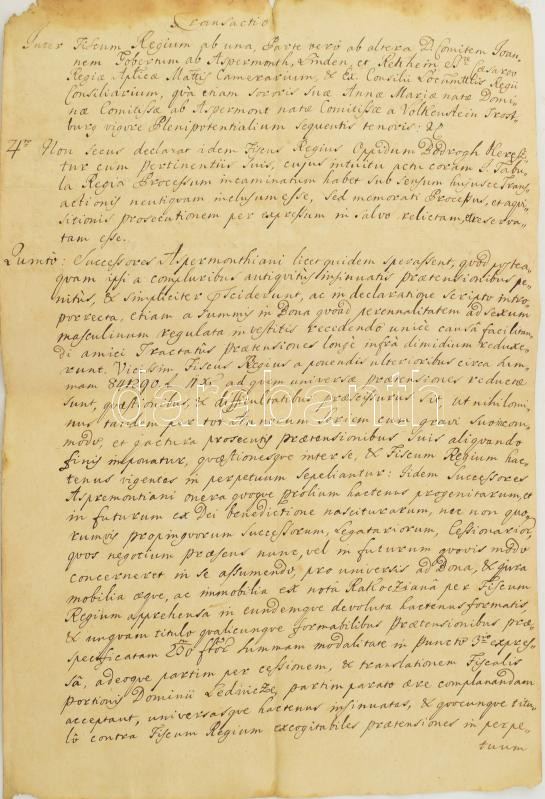 Transactio
Inter Fiscum Regium ab una, Parte verò ab altera D. Comitem Joan-
nem Gobertum ab Aspermonth, Linden, et Rekheim Sac. Cæsareo
Regiæ Aplicæ Mattis Camerarium, & Ex. Consilii Locumttlis Regii
Consiliarium, quà etiam Sororis Suæ Annæ Mariæ natæ Domi-
næ Comitissæ ab Aspermont natæ Comitissæ à Volkenstein Trost-
burg vigore Plenipotentialium sequentis tenoris: &
4to Non Secus declarat idem Fiscus Regius Oppidum Bodrogh Keresz-
tur cum pertinentiis suis, cujus intuitu acti coram I. Tabu-
la Regia Processum incaminatum habet sub Sensum hujusce Trans-
actionis neutiquam inclusum esse, Sed memorati Processus, et aqui-
sitionis prosecutionem per expressum in Salvo relictam, & reserva-
tam esse.
Quinto: Successores Aspermonthiani licet quidem sperassent, quod postea-
quam ipsi a compluribus antiquitùs insinuatis prætensionibus pe-
nitùs, & simpliciter absciderunt, ac in declaratione scripto intro
porrecta, etiam a Summis in Bona quoad perennalitatem ad sexum
masculinum regulata investitis recedendo unicè causâ facilitan-
di amici Tractatûs prætensiones longè infra dimidium reduxe-
runt. Vicissim, Fiscus Regius a movendis ulterioribus circa sum-
mam 841290 f. ad quem universæ prætensiones reductæ
sunt, quæstionibus, & difficultatibus præscissurus sit, ut nihilomi-
nus tandem per tot annorum Seriem cum gravi suo incom-
modo, et jactura prosecutis prætensionibus Suis aliquando
finis imponatur, quæstionesque inter se, & Fiscum Regium hac-
tenus vigentes in perpetuum sepeliantur: Iidem Successores
Aspremontiani onera quoque prolium hactenus progenitarum, et
in futurum ex Dei benedictione nasciturarum, nec non quo-
rumvis propinquorum Successorum, Legatariorum, Cessionarior,
quos negotium præsens nunc, vel in futurum quovis modo
concerneret in se assumendo, pro universis ad Bona, & jura
mobilia æque, ac immobilia est nota Rakocziana per Fiscum
Regium apprehensa in eundemque devoluta hactenus formatis,
& unquam titulo qualicunque formabilibus Prætensionibus præ-
specificatam summam modalitate in Puncto 3o expres-
sâ, adeoque partim per cessionem, & translationem Fiscalis
portionis Dominii Lednicze, partim parato ære complanandam
acceptant, universasque hactenus insinuatas, & quocunque titu-
lô contra Fiscum Regium excogitabiles prætensiones in perpe-
tuum
darabanth